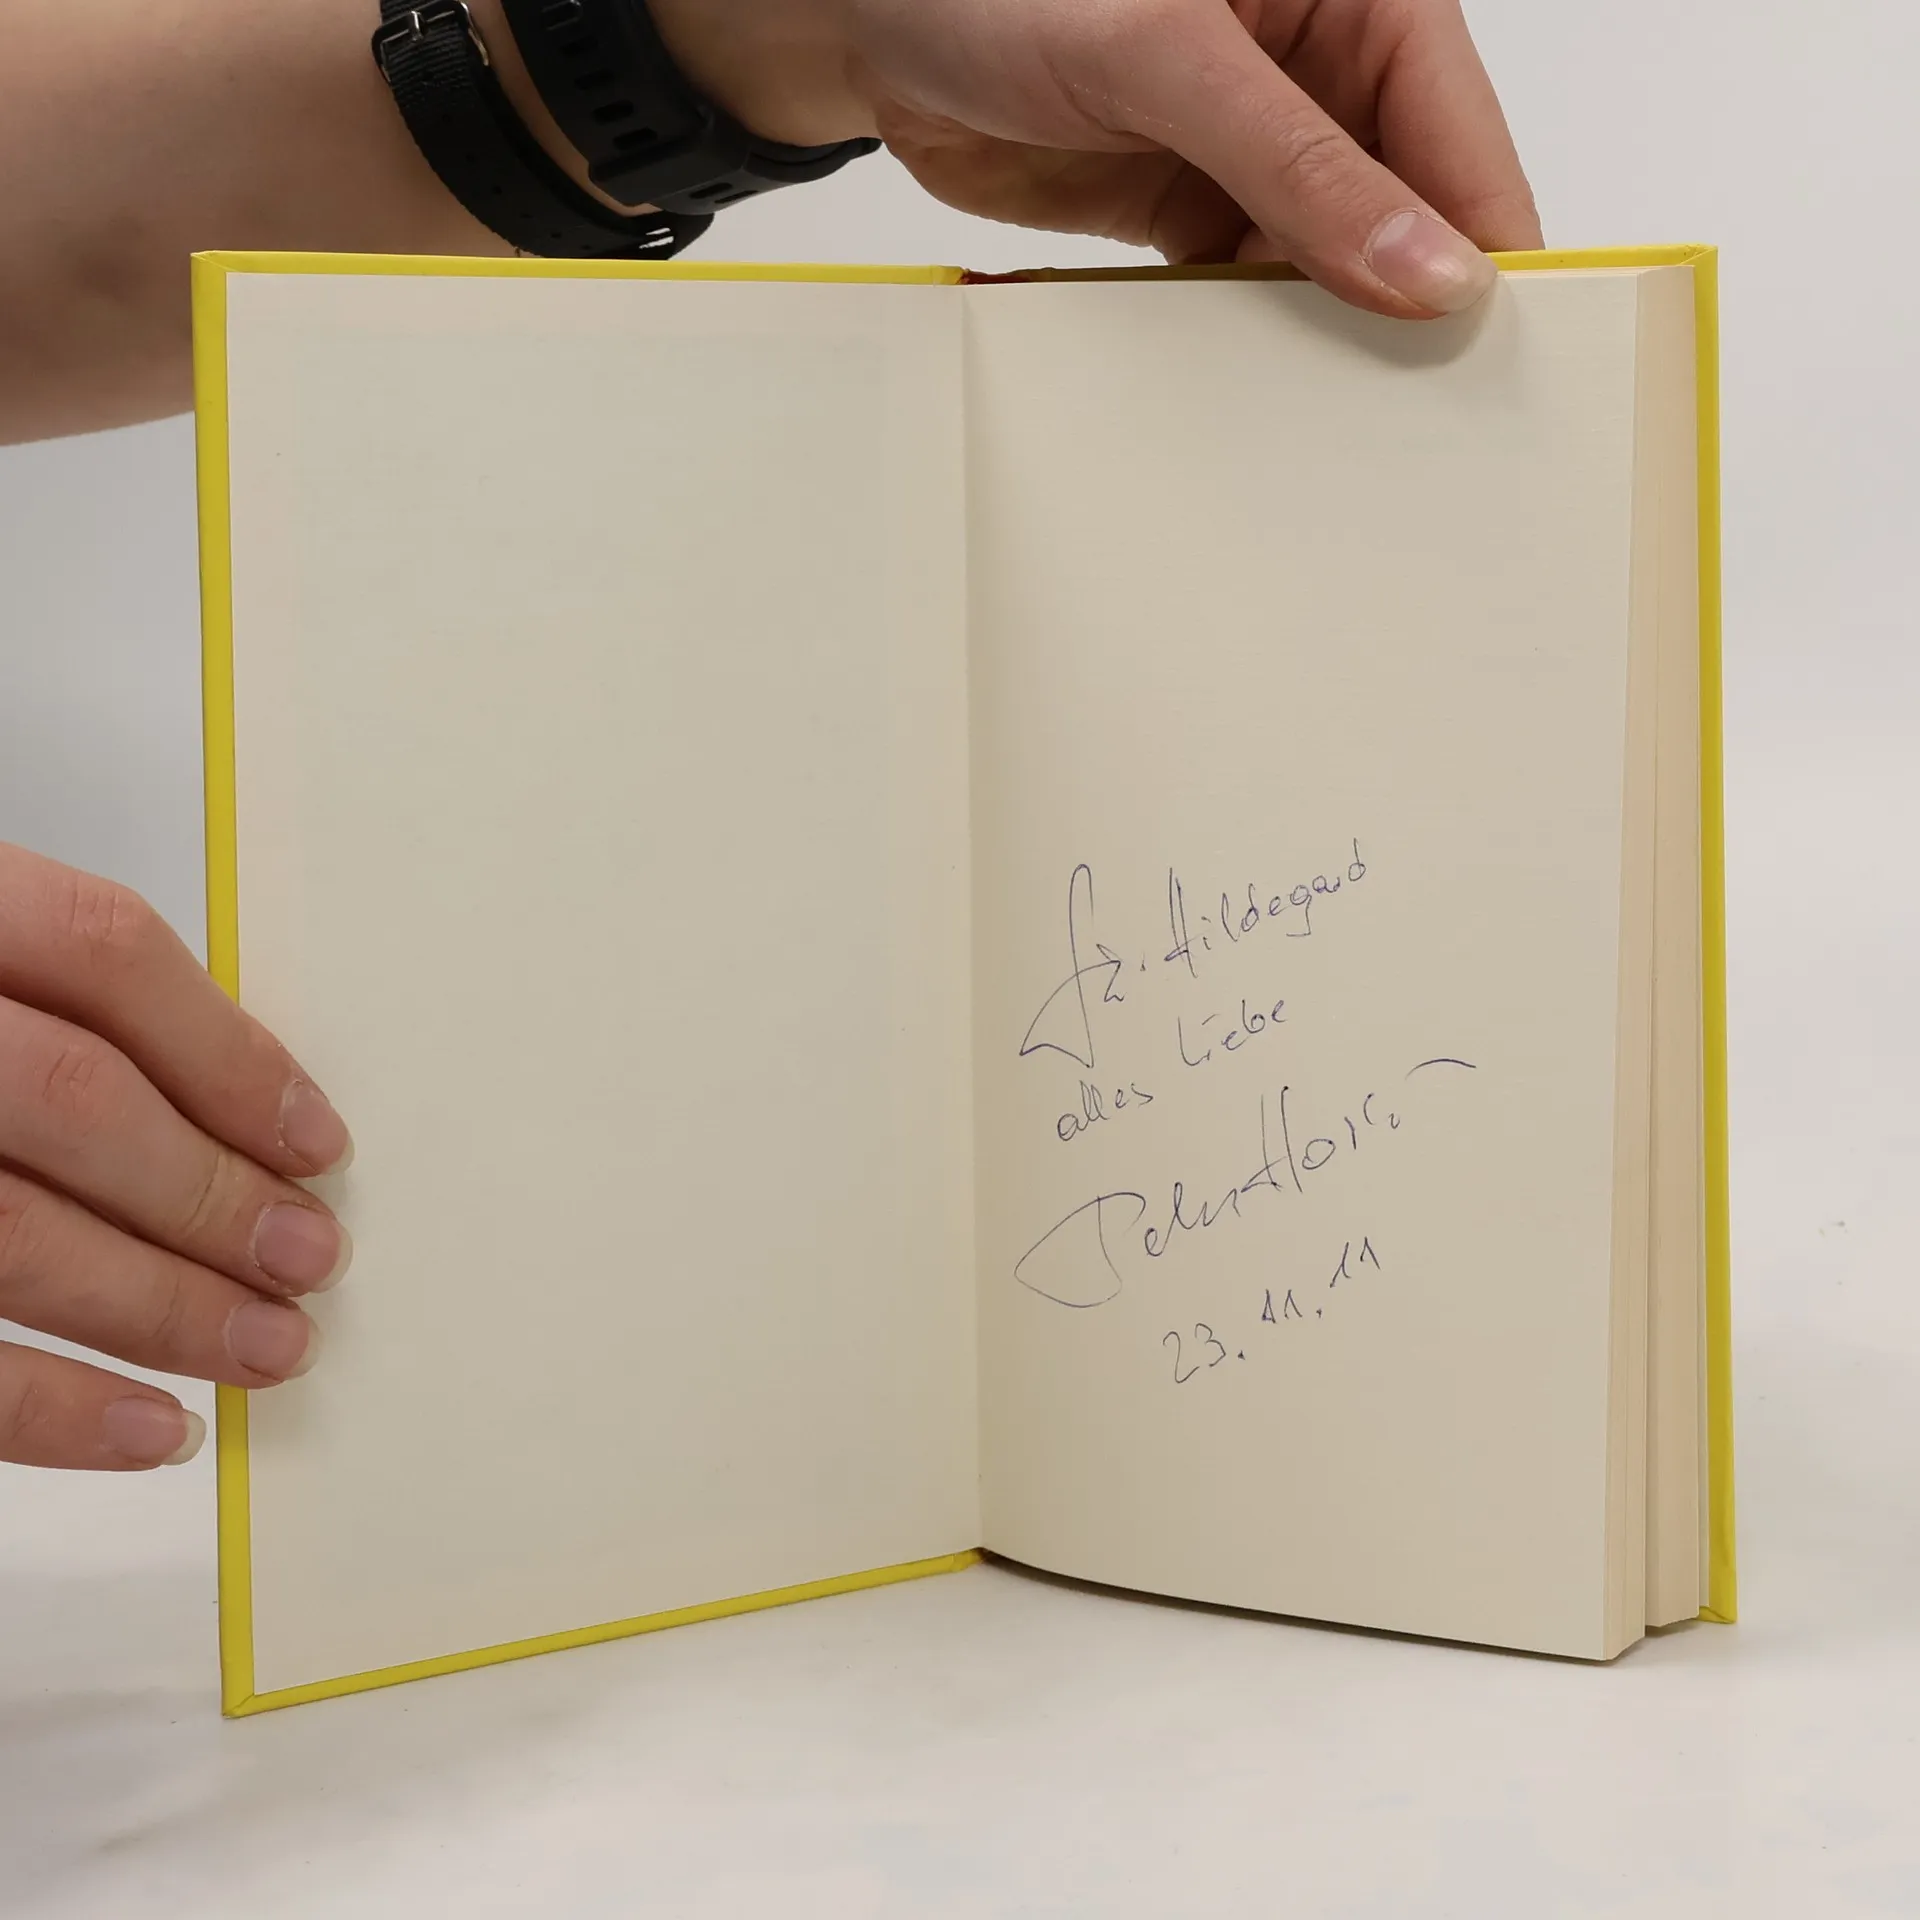 Für Hildegard
alles Liebe
Peter
23.11.11